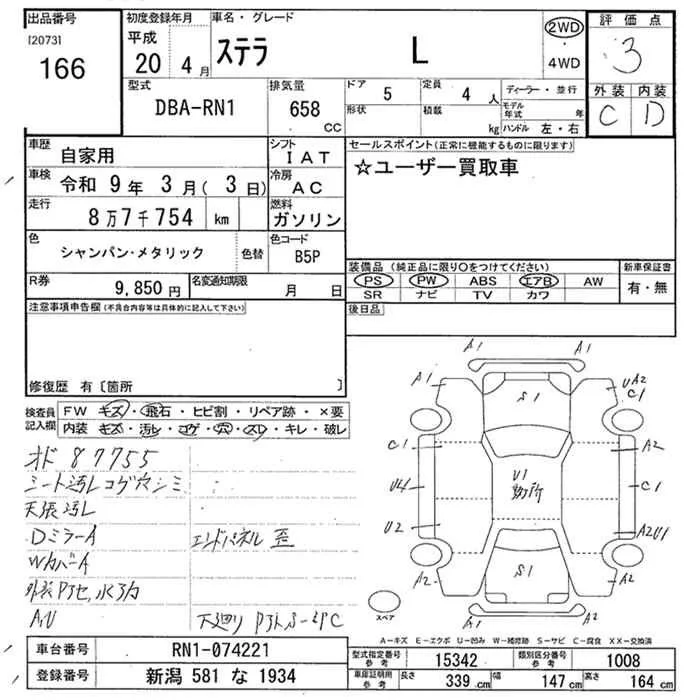 出品番号
[2073]
166
初度登録年月
平成
20 4月
車名・グレード
ステラ L
2WD
・
4WD
評価点
3
外装 内装
C D
型式
DBA-RN1
排気量
658
CC
ドア 5
定員 4人
形状
積載 kg
ディーラー・並行
モデル年式 年
ハンドル 左・右
車歴
自家用
シフト
IAT
車検
令和 9年 3月(3日)
冷房
AC
走行
8万7千754 km
燃料
ガソリン
色
シャンパン・メタリック
色替
色コード
B5P
R券
9,850円
名変通知期限
月 日
セールスポイント(正常に機能するものに限ります)
☆ユーザー買取車
装備品(純正品に限り○をつけてください)
PS PW ABS エアB AW
SR ナビ TV カワ
新車保証書
有・無
後日品
注意事項申告欄(不具合内容等は具体的に記入して下さい)
修復歴 有〔箇所 〕
検査員
記入欄
FW キズ・飛石・ヒビ割・リペア跡・×要
内装 キズ・汚レ・コゲ・穴・スレ・キレ・破レ
オド 87755
シート汚レコゲ穴シミ
天張汚レ
DミラーA
エンドパネル 歪
WカバーA
A,U
下廻り
A1 A1
A1
S1
UA2
C1
C1
A2
U4
U1
C1
U2
A2U1
S1
A2
A2
A1 A1
スペア
A-キズ E-エクボ U-凹み W-補修跡 S-サビ C-腐食 XX-交換済
車台番号
RN1-074221
登録番号
新潟 581 な 1934
型式指定番号
参考
15342
類別区分番号
参考
1008
車庫証明用
参考
長さ 339 cm
幅 147 cm
高さ 164 cm